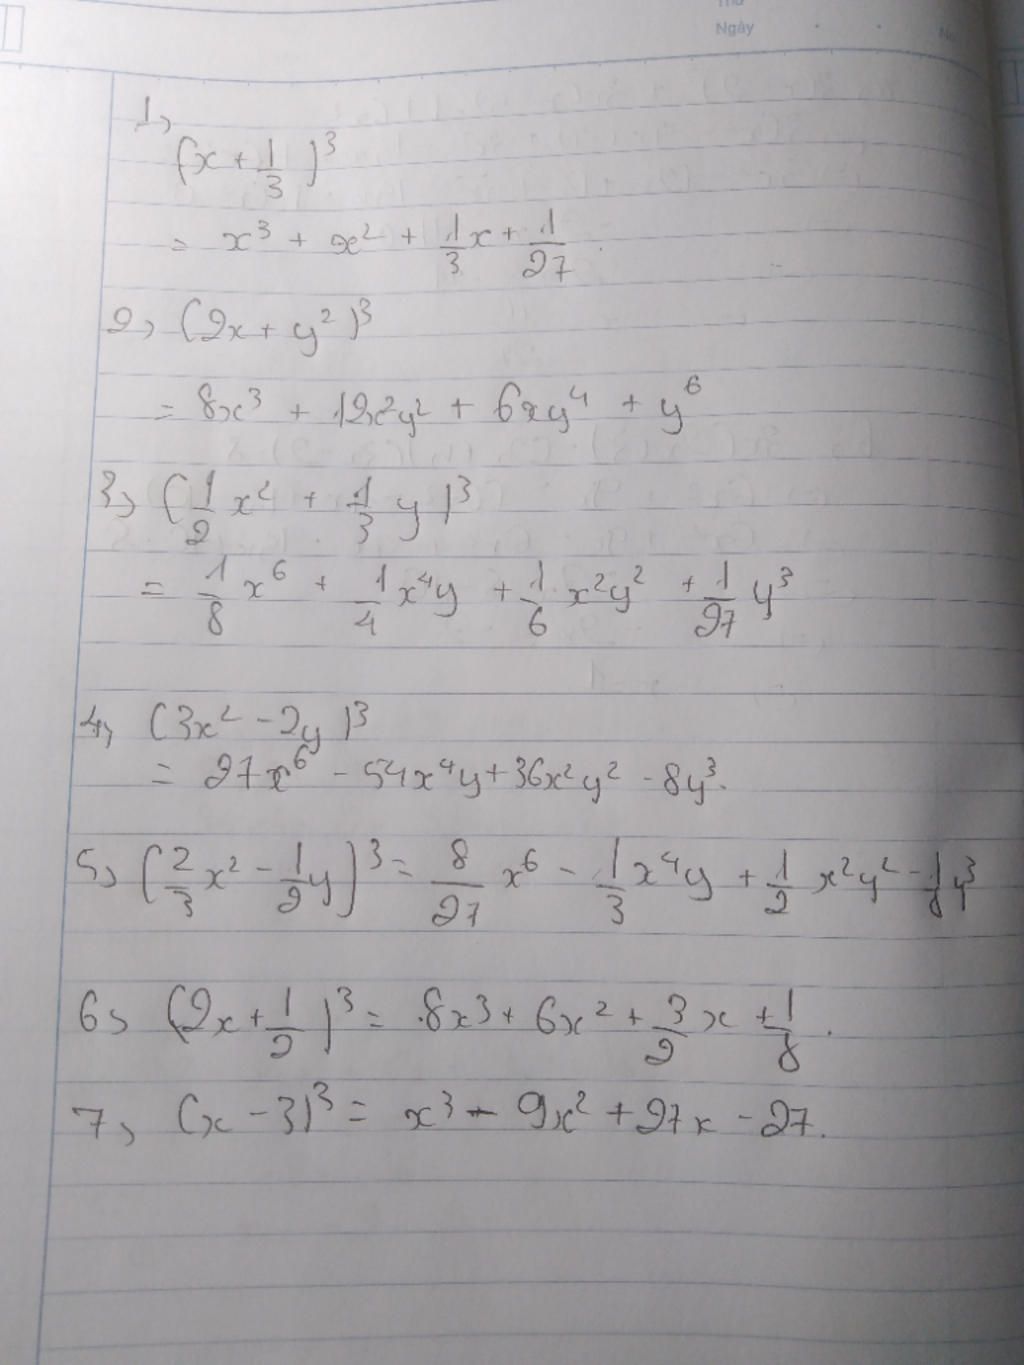 Thứ
Ngày
No
1,
(x + 1/3)³
= x³ + x² + 1/3 x + 1/27
2, (2x + y²)³
= 8x³ + 12x²y² + 6xy⁴ + y⁶
3, (1/2 x² + 1/3 y)³
= 1/8 x⁶ + 1/4 x⁴y + 1/6 x²y² + 1/27 y³
4, (3x² - 2y)³
= 27x⁶ - 54x⁴y + 36x²y² - 8y³.
5, (2/3 x² - 1/2 y)³ = 8/27 x⁶ - 1/3 x⁴y + 1/2 x²y² - 1/8 y³
6, (2x + 1/2)³ = 8x³ + 6x² + 3/2 x + 1/8.
7, (x - 3)³ = x³ - 9x² + 27x - 27.